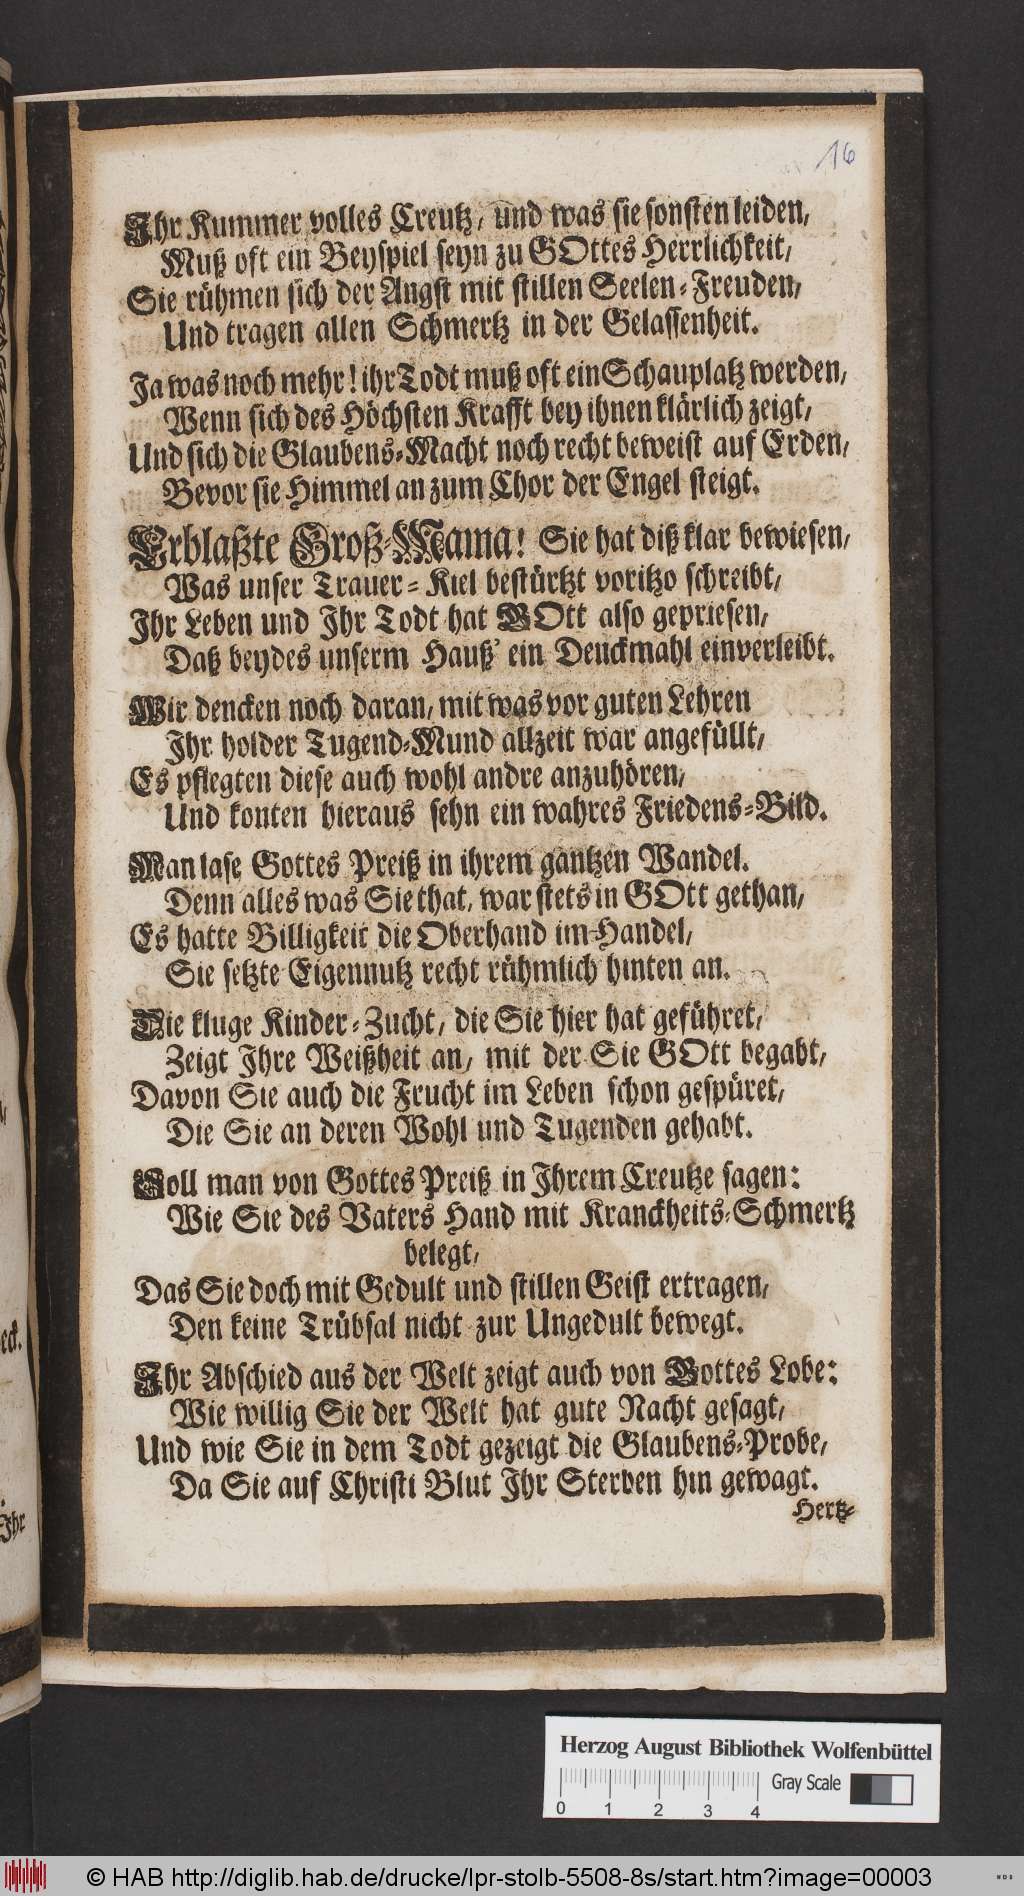 16
Ihr Kummer volles Creutz, und was sie sonsten leiden,
Muß oft ein Beyspiel seyn zu GOttes Herrlichkeit,
Sie rühmen sich der Angst mit stillen Seelen-Freuden,
Und tragen allen Schmertz in der Gelassenheit.
Ja was noch mehr! ihr Todt muß oft ein Schauplatz werden,
Wenn sich des Höchsten Krafft bey ihnen klärlich zeigt,
Und sich die Glaubens-Macht noch recht beweist auf Erden,
Bevor sie Himmel an zum Chor der Engel steigt.
Erblaßte Groß-Mama! Sie hat diß klar bewiesen,
Was unser Trauer-Kiel bestürtzt voritzo schreibt,
Ihr Leben und Ihr Todt hat GOtt also gepriesen,
Daß beydes unserm Hauß' ein Denckmahl einverleibt.
Wir dencken noch daran, mit was vor guten Lehren
Ihr holder Tugend-Mund allzeit war angefüllt,
Es pflegten diese auch wohl andre anzuhören,
Und konten hieraus sehn ein wahres Friedens-Bild.
Man lase Gottes Preiß in ihrem gantzen Wandel.
Denn alles was Sie that, war stets in GOtt gethan,
Es hatte Billigkeit die Oberhand im Handel,
Sie setzte Eigennutz recht rühmlich hinten an.
Die kluge Kinder-Zucht, die Sie hier hat geführet,
Zeigt Ihre Weißheit an, mit der Sie GOtt begabt,
Davon Sie auch die Frucht im Leben schon gespüret,
Die Sie an deren Wohl und Tugenden gehabt.
Soll man von Gottes Preiß in Ihrem Creutze sagen:
Wie Sie des Vaters Hand mit Kranckheits-Schmertz
belegt,
Das Sie doch mit Gedult und stillen Geist ertragen,
Den keine Trübsal nicht zur Ungedult bewegt.
Ihr Abschied aus der Welt zeigt auch von Gottes Lobe:
Wie willig Sie der Welt hat gute Nacht gesagt,
Und wie Sie in dem Todt gezeigt die Glaubens-Probe,
Da Sie auf Christi Blut Ihr Sterben hin gewagt.
Hertz-
eck.
Ihr
Herzog August Bibliothek Wolfenbüttel
Gray Scale
0 1 2 3 4
© HAB http://diglib.hab.de/drucke/lpr-stolb-5508-8s/start.htm?image=00003